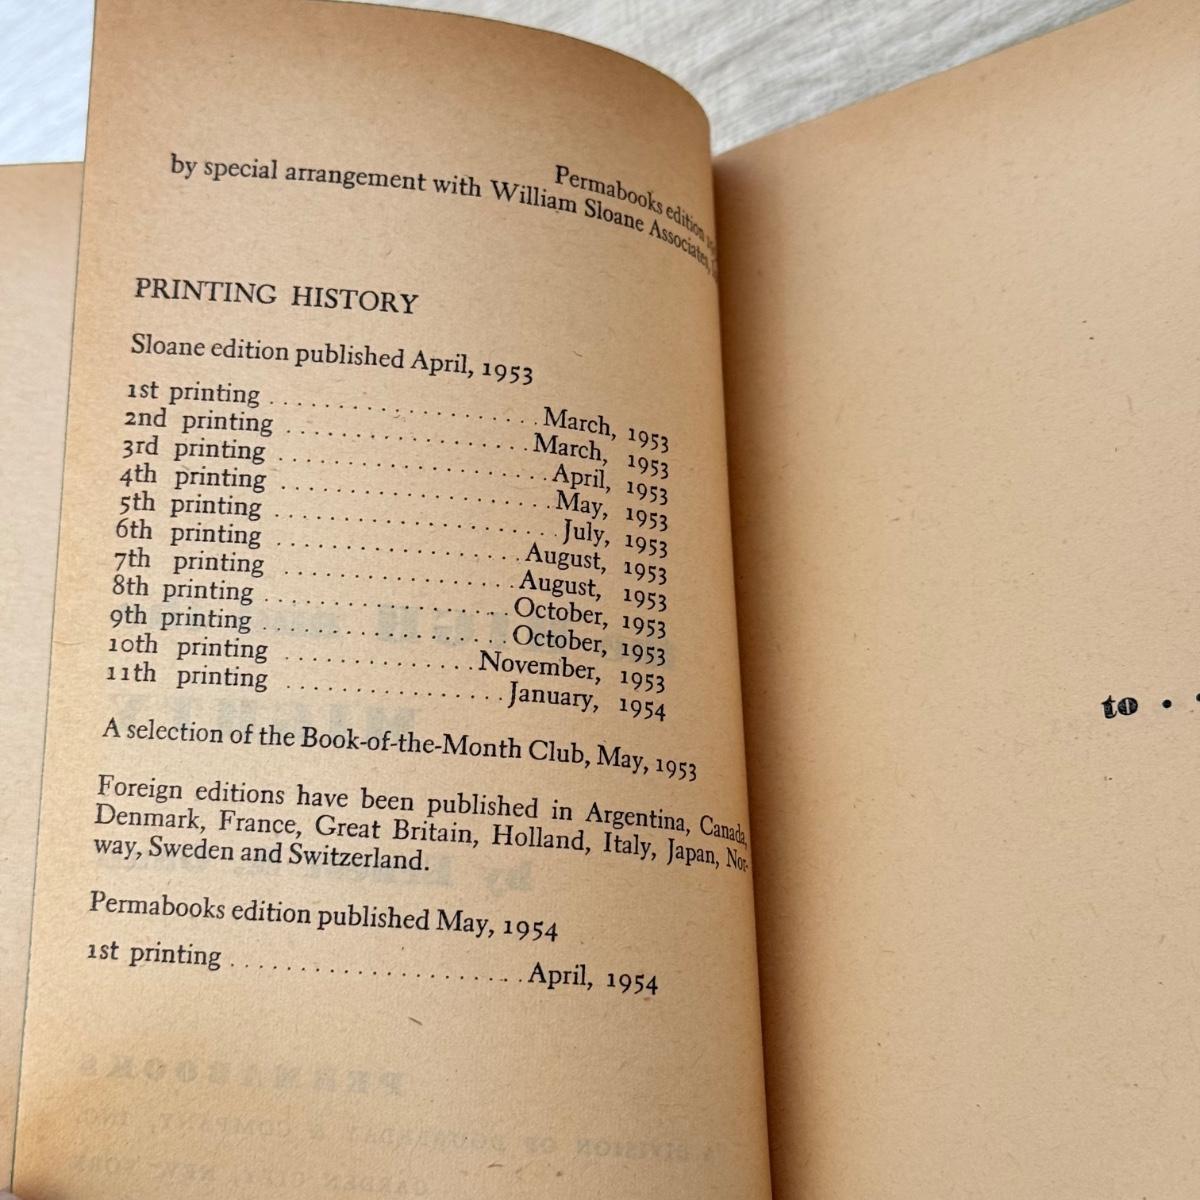 Permabooks edition
by special arrangement with William Sloane Associates,
PRINTING HISTORY
Sloane edition published April, 1953
1st printing . . . . . . . . . . . . . . . . . . . . March, 1953
2nd printing . . . . . . . . . . . . . . . . . . March, 1953
3rd printing . . . . . . . . . . . . . . . . . . . . April, 1953
4th printing . . . . . . . . . . . . . . . . . . . . May, 1953
5th printing . . . . . . . . . . . . . . . . . . . . . July, 1953
6th printing . . . . . . . . . . . . . . . . . . August, 1953
7th printing . . . . . . . . . . . . . . . . . August, 1953
8th printing . . . . . . . . . . . . . . . . . . October, 1953
9th printing . . . . . . . . . . . . . . . . . . October, 1953
10th printing . . . . . . . . . . . . . . November, 1953
11th printing . . . . . . . . . . . . . . . . January, 1954
A selection of the Book-of-the-Month Club, May, 1953
Foreign editions have been published in Argentina, Canada,
Denmark, France, Great Britain, Holland, Italy, Japan, Nor-
way, Sweden and Switzerland.
Permabooks edition published May, 1954
1st printing . . . . . . . . . . . . . . . . . . . . . . April, 1954
PERMABOOKS
A DIVISION OF DOUBLEDAY & COMPANY, INC.
GARDEN CITY, NEW YORK
to • •